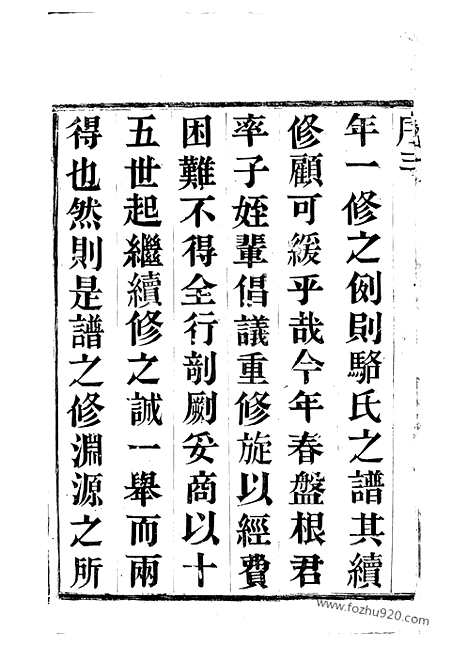 序三
年一修之例則駱氏之譜其續
修顧可緩乎哉今年春盤根君
率子姪輩倡議重修旋以經費
困難不得全行剞劂妥商以十
五世起繼續修之誠一舉而兩
得也然則是譜之修淵源之所
www.fozhu920.com